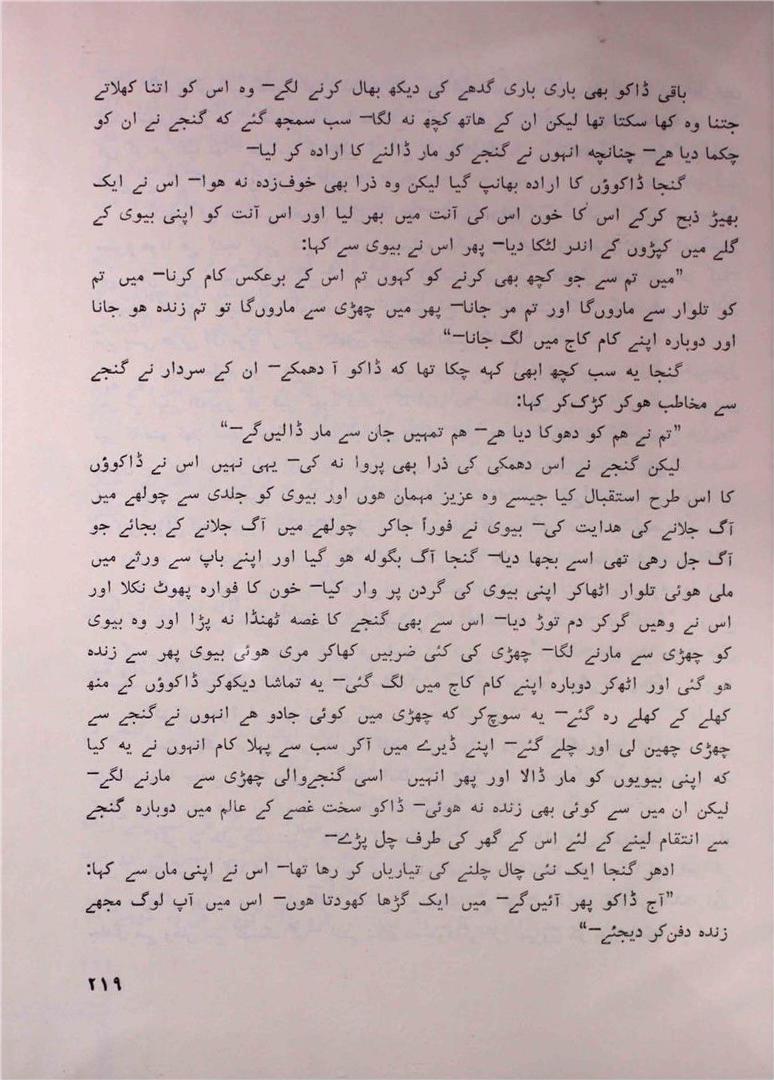 باقی ڈاکو بھی باری باری گدھے کی دیکھ بھال کرنے لگے— وہ اس کو اتنا کھلاتے
جتنا وہ کھا سکتا تھا لیکن ان کے ھاتھ کچھ نہ لگا— سب سمجھ گئے کہ گنجے نے ان کو
چکما دیا ھے— چنانچہ انہوں نے گنجے کو مار ڈالنے کا ارادہ کر لیا—
گنجا ڈاکوؤں کا ارادہ بھانپ گیا لیکن وہ ذرا بھی خوف‌زدہ نہ ھوا— اس نے ایک
بھیڑ ذبح کرکے اس کا خون اس کی آنت میں بھر لیا اور اس آنت کو اپنی بیوی کے
گلے میں کپڑوں کے اندر لٹکا دیا— پھر اس نے بیوی سے کہا:
”میں تم سے جو کچھ بھی کرنے کو کہوں تم اس کے برعکس کام کرنا— میں تم
کو تلوار سے ماروں‌گا اور تم مر جانا— پھر میں چھڑی سے ماروں‌گا تو تم زندہ ھو جانا
اور دوبارہ اپنے کام کاج میں لگ جانا—“
گنجا یہ سب کچھ ابھی کہہ چکا تھا کہ ڈاکو آ دھمکے— ان کے سردار نے گنجے
سے مخاطب ھوکر کڑک‌کر کہا:
”تم نے ھم کو دھوکا دیا ھے— ھم تمہیں جان سے مار ڈالیں‌گے—“
لیکن گنجے نے اس دھمکی کی ذرا بھی پروا نہ کی— یہی نہیں اس نے ڈاکوؤں
کا اس طرح استقبال کیا جیسے وہ عزیز مہمان ھوں اور بیوی کو جلدی سے چولھے میں
آگ جلانے کی ھدایت کی— بیوی نے فوراً جاکر چولھے میں آگ جلانے کے بجائے جو
آگ جل رھی تھی اسے بجھا دیا— گنجا آگ بگولہ ھو گیا اور اپنے باپ سے ورثے میں
ملی ھوئی تلوار اٹھاکر اپنی بیوی کی گردن پر وار کیا— خون کا فوارہ پھوٹ نکلا اور
اس نے وھیں گرکر دم توڑ دیا— اس سے بھی گنجے کا غصہ ٹھنڈا نہ پڑا اور وہ بیوی
کو چھڑی سے مارنے لگا— چھڑی کی کئی ضربیں کھاکر مری ھوئی بیوی پھر سے زندہ
ھو گئی اور اٹھ‌کر دوبارہ اپنے کام کاج میں لگ گئی— یہ تماشا دیکھ‌کر ڈاکوؤں کے منھ
کھلے کے کھلے رہ گئے— یہ سوچ‌کر کہ چھڑی میں کوئی جادو ھے انہوں نے گنجے سے
چھڑی چھین لی اور چلے گئے— اپنے ڈیرے میں آکر سب سے پہلا کام انہوں نے یہ کیا
کہ اپنی بیویوں کو مار ڈالا اور پھر انہیں اسی گنجے‌والی چھڑی سے مارنے لگے—
لیکن ان میں سے کوئی بھی زندہ نہ ھوئی— ڈاکو سخت غصے کے عالم میں دوبارہ گنجے
سے انتقام لینے کے لئے اس کے گھر کی طرف چل پڑے—
ادھر گنجا ایک نئی چال چلنے کی تیاریاں کر رھا تھا— اس نے اپنی ماں سے کہا:
”آج ڈاکو پھر آئیں‌گے— میں ایک گڑھا کھودتا ھوں— اس میں آپ لوگ مجھے
زندہ دفن‌کر دیجئے—“
۲۱۹